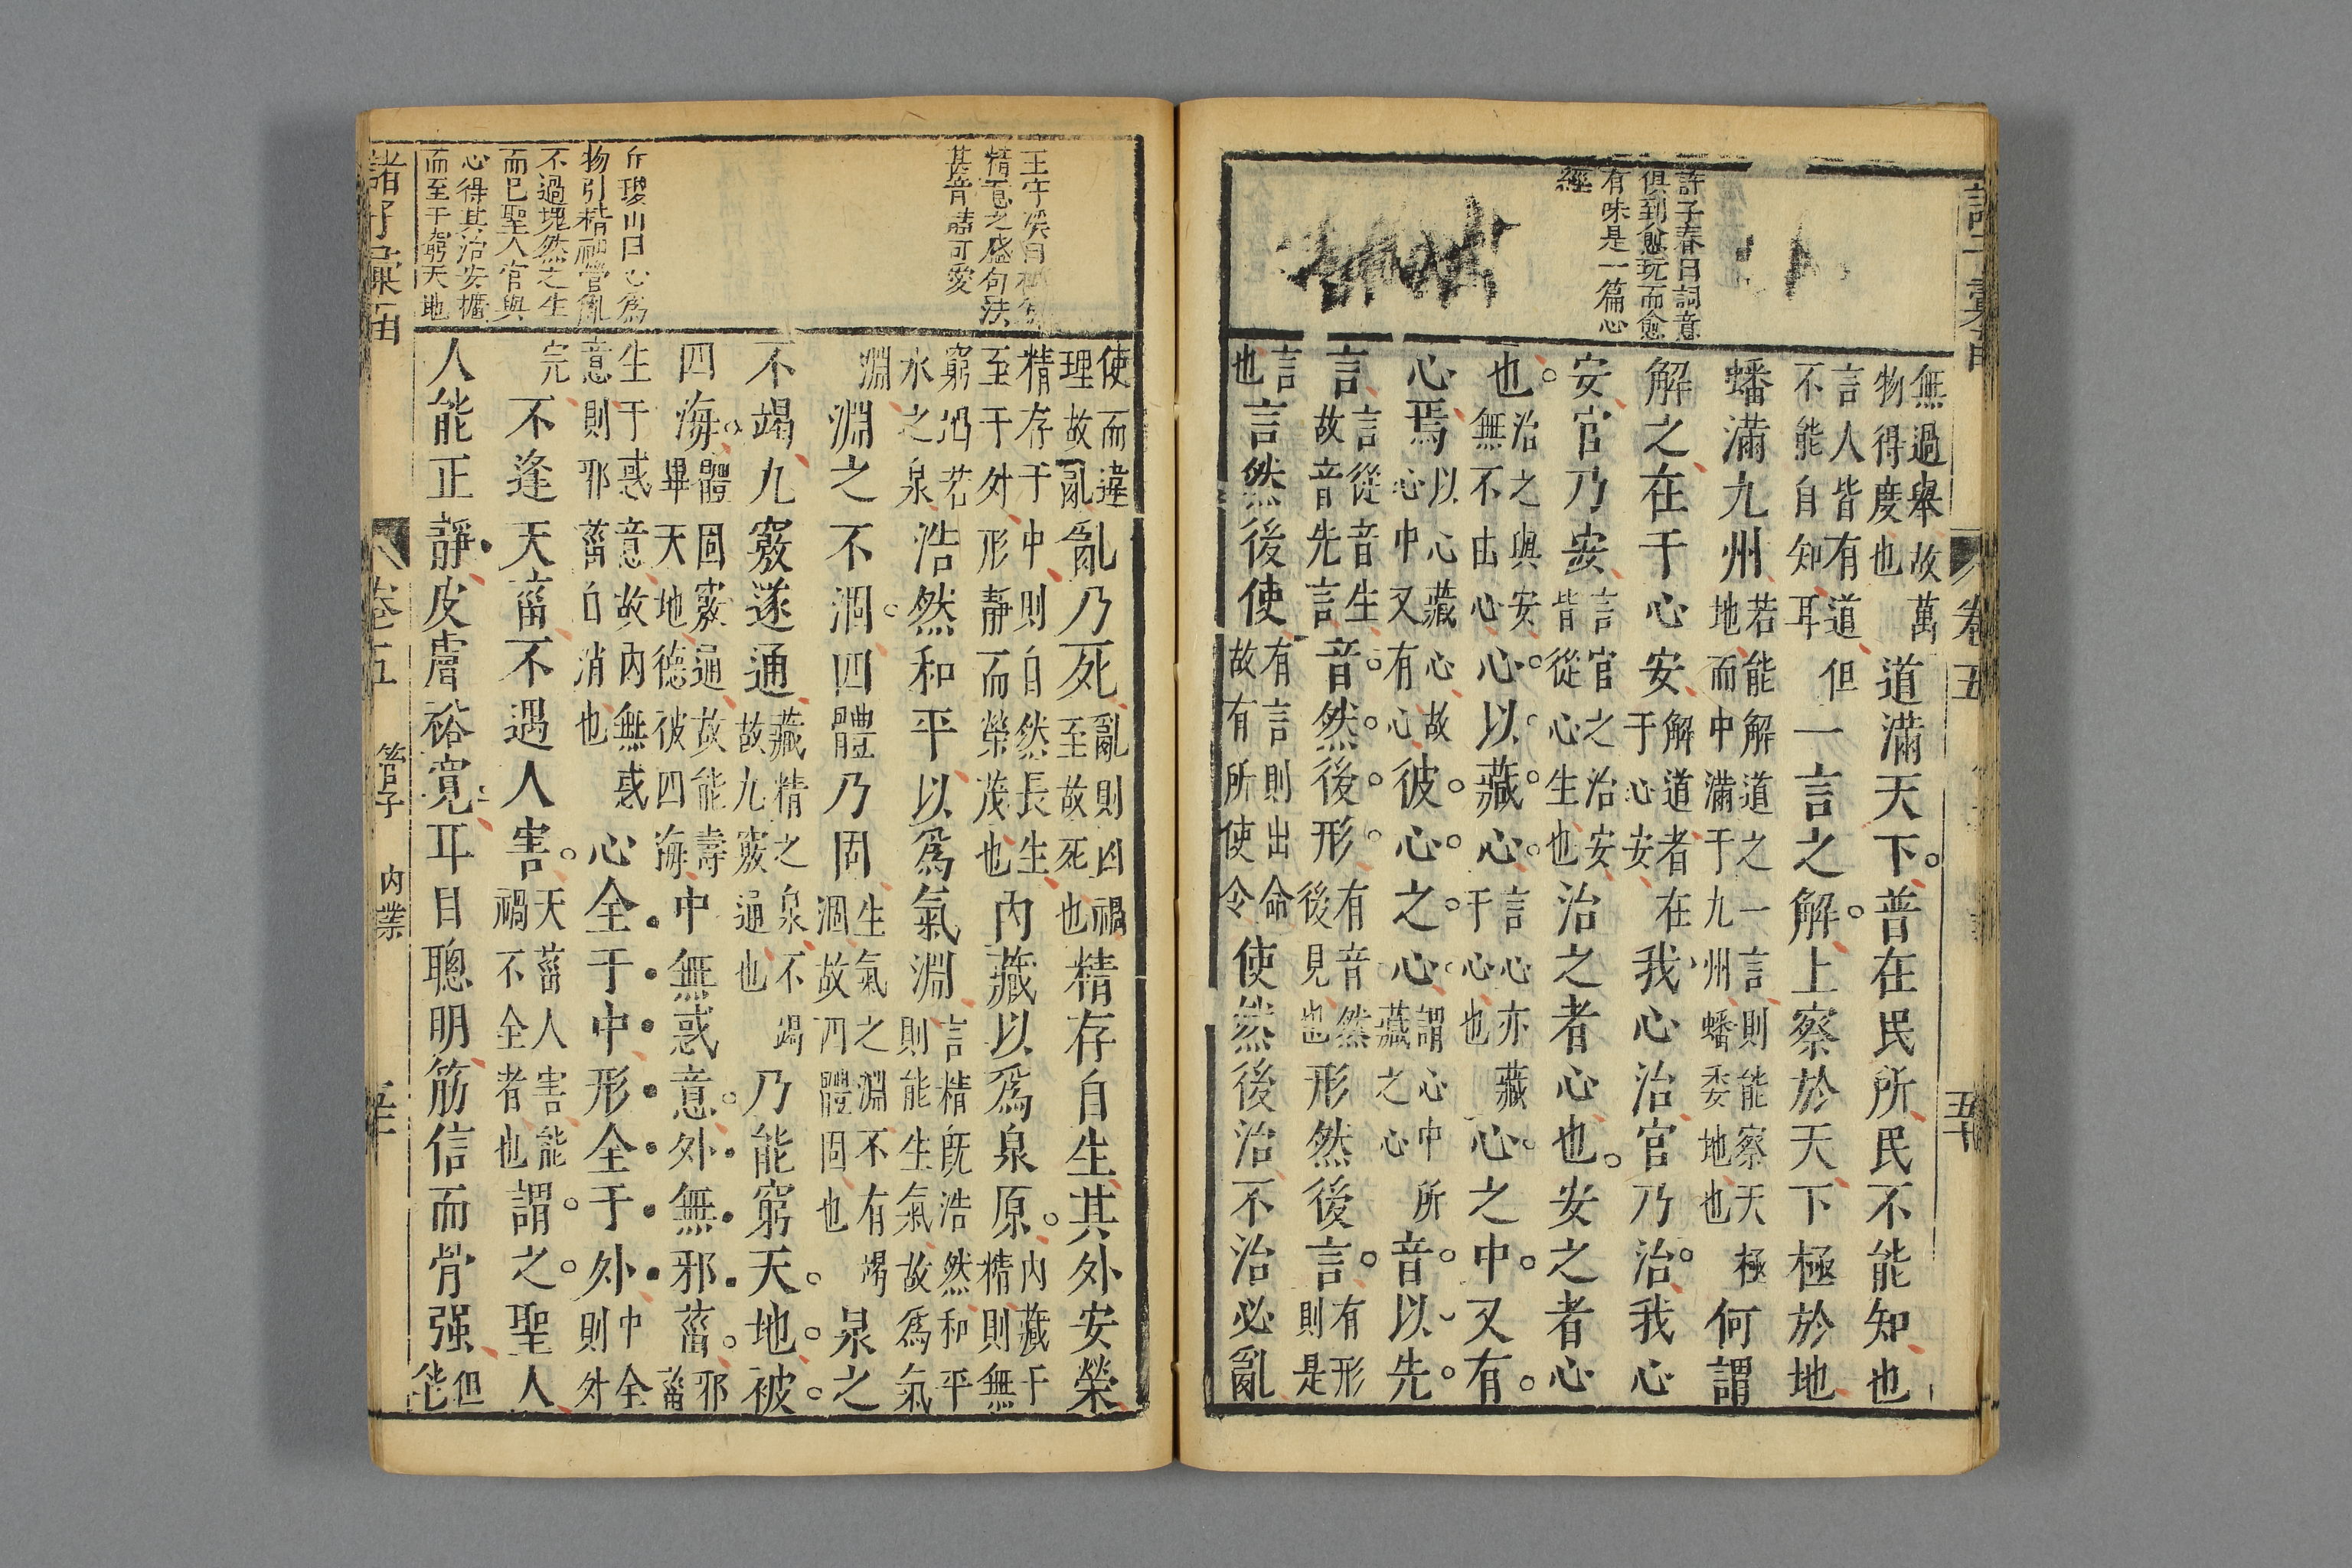 許子春曰詞意
俱到愈玩而愈
有味是一篇心
經
無過舉故萬
物得度也
道滿天下普在民所民不能知也
言人皆有道但
不能自知耳
一言之解上察於天下極於地
蟠滿九州
若能解道之一言則能察天極
地而中滿于九州蟠委地也
何謂
解之在于心安
解道者在
于心安
我心治官乃治我心
安官乃安
言官之治安
皆從心生也
治之者心也安之者心
也
治之與安
無不由心
心以藏心
言心亦藏
于心也
心之中又有
心焉
以心藏心故
心中又有心
彼心之心
謂心中所
藏之心
音以先
言
言從音生
故音先言
音然後形
有音然
後見也
形然後言
有形
則是
言
也
言然後使
有言則出命
故有所使令
使然後治不治必亂
王宇
精意之盛句法
甚奇誦可愛
使而違
理故亂
亂乃死
亂則凶禍
至故死也
精存自生其外安榮
精存于中則自然長生
至于外形靜而榮茂也
內藏以為泉原
內藏于
精則無
窮沼若
水之泉
浩然和平以為氣淵
言精既浩然和平
則能生氣故為氣
淵
淵之不涸四體乃固
生氣之淵不有竭
涸故四體固也
泉之
不竭九竅遂通
藏精之泉不竭
故九竅通也
乃能窮天地被
四海
體固竅通故能壽
畢天地德被四海
中無惑意外無邪菑
邪
菑
生于惑意故內無惑
意則邪菑自消也
心全于中形全于外
中全
則外
完
不逢天菑不遇人害
天菑人害能
禍不全者也
謂之聖人
人能正靜皮膚裕寬耳目聰明筋信而骨强
但
能
丘瓊山曰心為
物引精神營亂
不過塊然之生
而已聖人官與
心得其治安攄
而至于窮天地
卷五
管子
內業